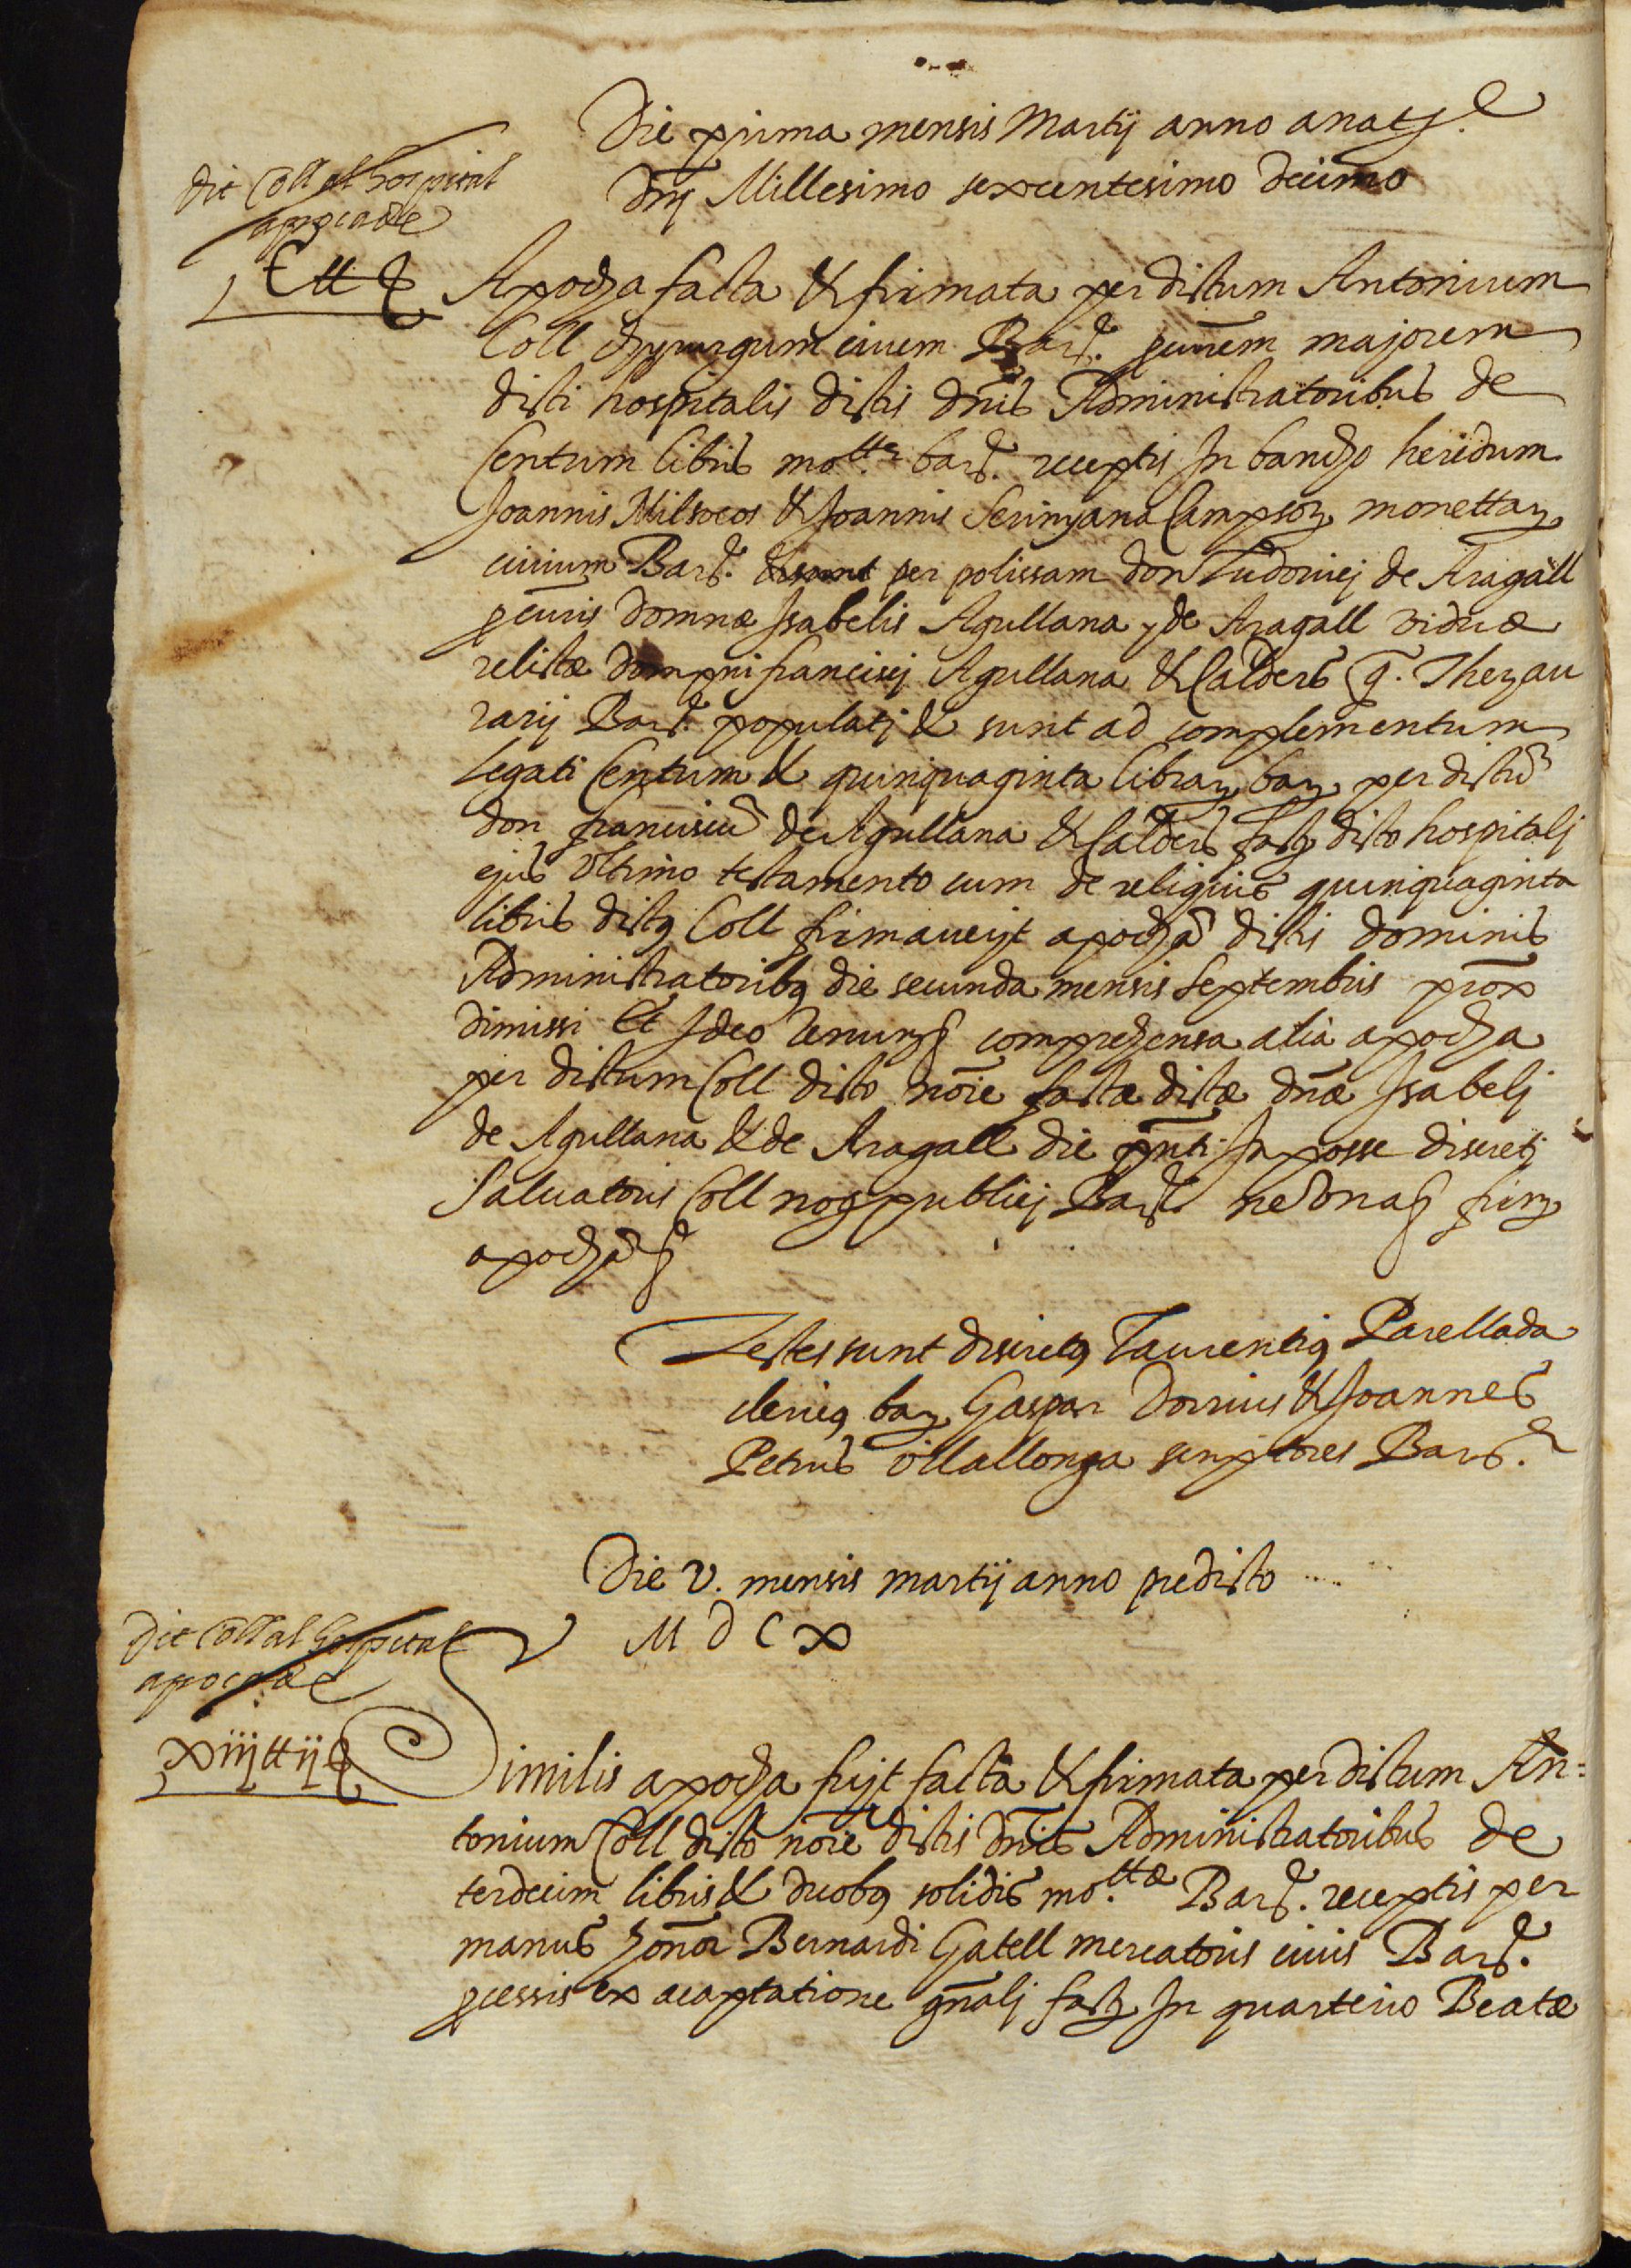 Die prima mensis Martij anno a nat.
Dnj Millesimo sexcentesimo decimo
dit Coll al hospital
apoca de
C tt
Apocha facta & firmata per dictum Antonium
Coll chyrurgum civem Barc. majorem
dicti hospitalis dictis dnis Administratoribus de
Centum libris mottae barc. receptis In bancho heredum
Joannis Milsocos & Joannis Serinyana Campsor monettar
civium Barc. per polissam don Ludovicj de Aragall
domnæ Isabelis Agullana y de Aragall viduæ
relictæ dompni franciscj Agullana & Calders q. Thezau
rarij Barc. populatj & sunt ad complementum
Legati Centum & quinquaginta librar bar per dictu
don franciscu de Agullana & Calders fact dicto hospitalj
ejus Ultimo testamento cum de reliquis quinquaginta
libris dictus Coll firmaverit apocha dictis dominis
Administratoribus die secunda mensis Septembris prox
dimissi Et Ideo comprehensa alia apocha
per dictum Coll dicto noie facta dictæ dnæ Isabelj
de Agullana & de Aragall die pnti In posse discretj
Salvatoris Coll not publicj Barc. firm
apocha
Testes sunt discretus Laurentius Parellada
clericus bar Gaspar Dorrius & Joannes
Petrus Villallonga scriptores Barc.
Die V. mensis martij anno predicto
M D C X
Dit Coll al hospital
apoca de
xiij tt ij
Similis apocha fuit facta & firmata per dictum An=
tonium Coll dicto noie dictis dnis Administratoribus de
terdecim libris & duobus solidis mo.ttæ Barc. receptis per
manus honor Bernardi Gatell mercatoris civis Barc.
pcessis ex acaptatione gnalj fact In quarterio Beatæ